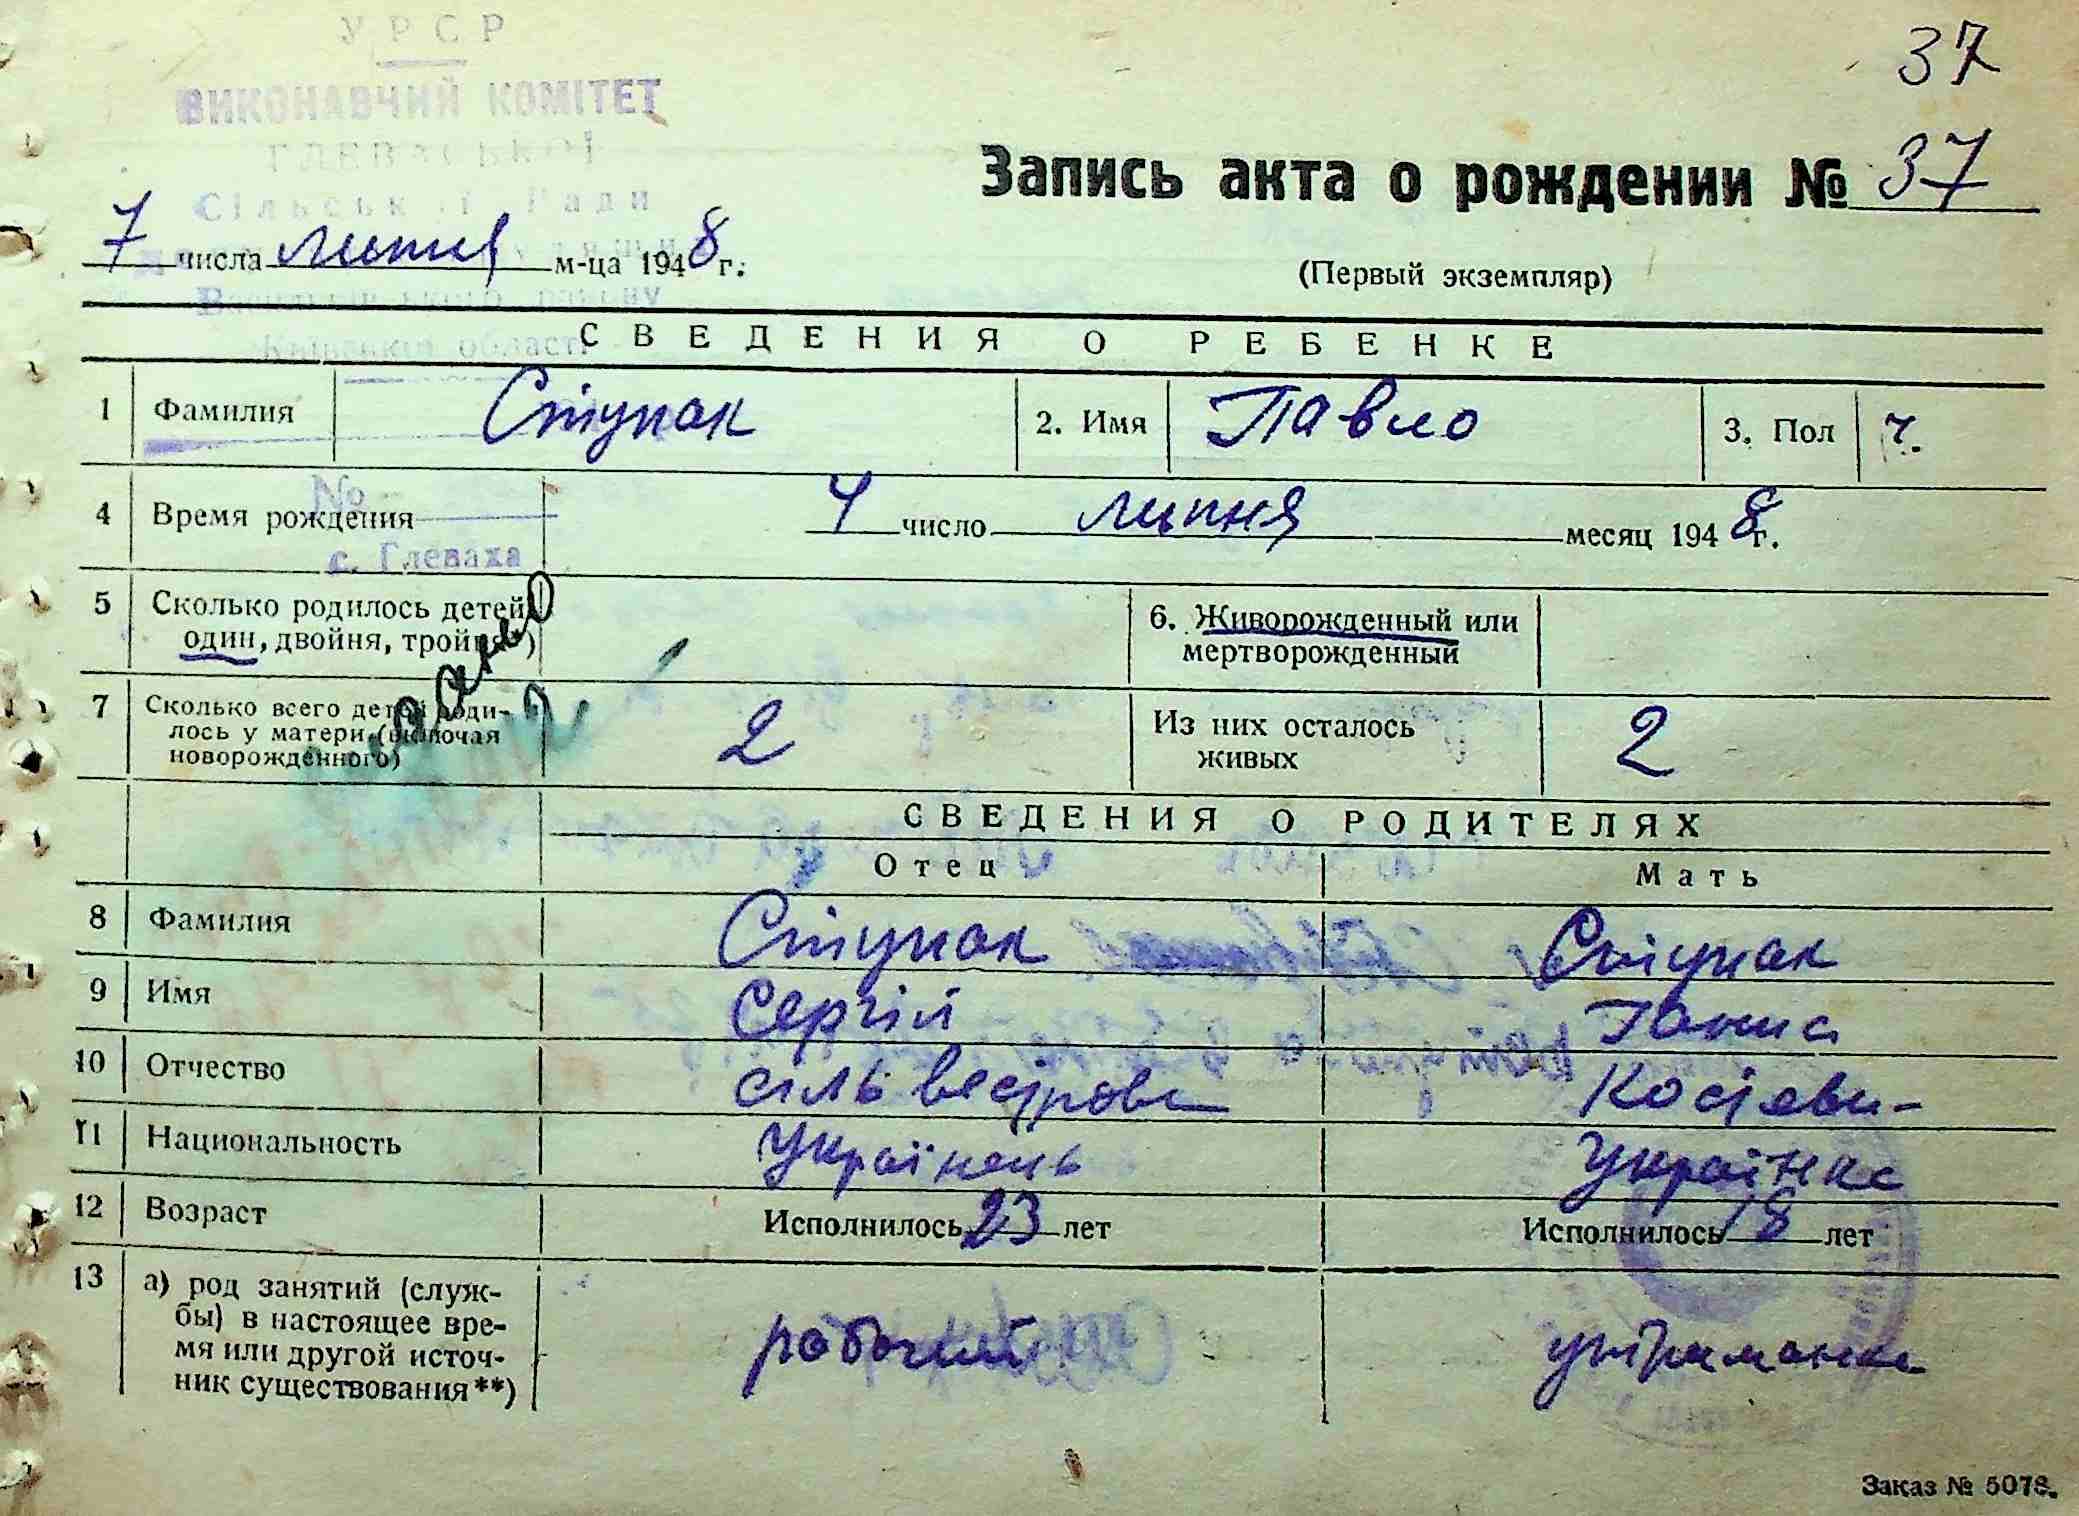 УРСР
37
ВИКОНАВЧИЙ КОМІТЕТ
ГЛЕВАСЬКОЇ
Сільської Ради
Запись акта о рождении № 37
7 числа липня м-ца 1948 г.
(Первый экземпляр)
Васильківського району
Київської області
СВЕДЕНИЯ О РЕБЕНКЕ
1 Фамилия Ступак 2. Имя Павло 3. Пол ч.
№
4 Время рождения 4 число липня месяц 1948 г.
с. Глеваха
5 Сколько родилось детей один, двойня, тройня*)
6. Живорожденный или мертворожденный
7 Сколько всего детей родилось у матери (включая новорожденного) 2 Из них осталось живых 2
СВЕДЕНИЯ О РОДИТЕЛЯХ
Отец Мать
8 Фамилия Ступак Ступак
9 Имя Сергій Ганна
10 Отчество сільвестрови
11 Национальность Українець Українка
12 Возраст Исполнилось 23 лет Исполнилось 18 лет
13 а) род занятий (службы) в настоящее время или другой источник существования**) рабочий утриманка
Заказ № 5078.